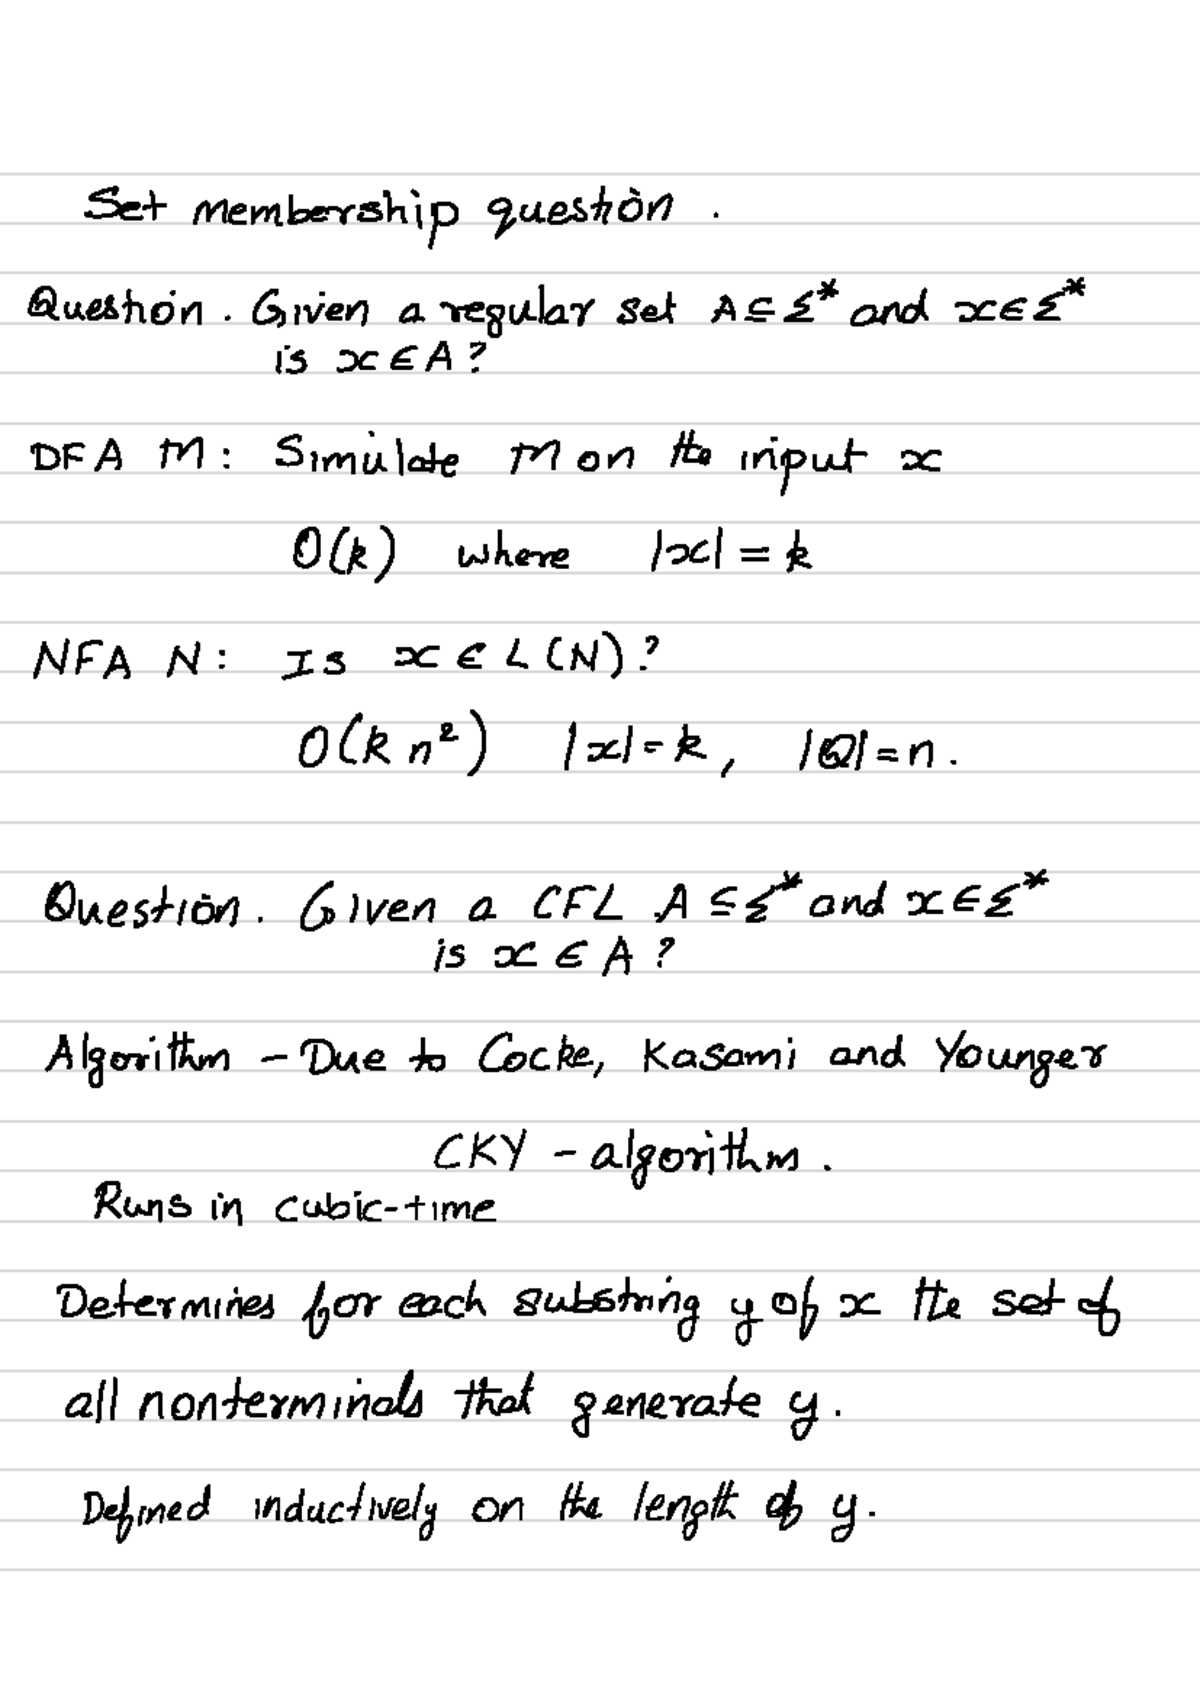 Set membership question.
Question. Given a regular set A ⊆ Σ* and x ∈ Σ*
is x ∈ A?
DFA M: Simulate M on the input x
O(k) where |x| = k
NFA N: Is x ∈ L(N)?
O(k n²) |x| = k, |Q| = n.
Question. Given a CFL A ⊆ Σ* and x ∈ Σ*
is x ∈ A?
Algorithm - Due to Cocke, Kasami and Younger
CKY - algorithm.
Runs in cubic-time
Determines for each substring y of x the set of
all nonterminals that generate y.
Defined inductively on the length of y.